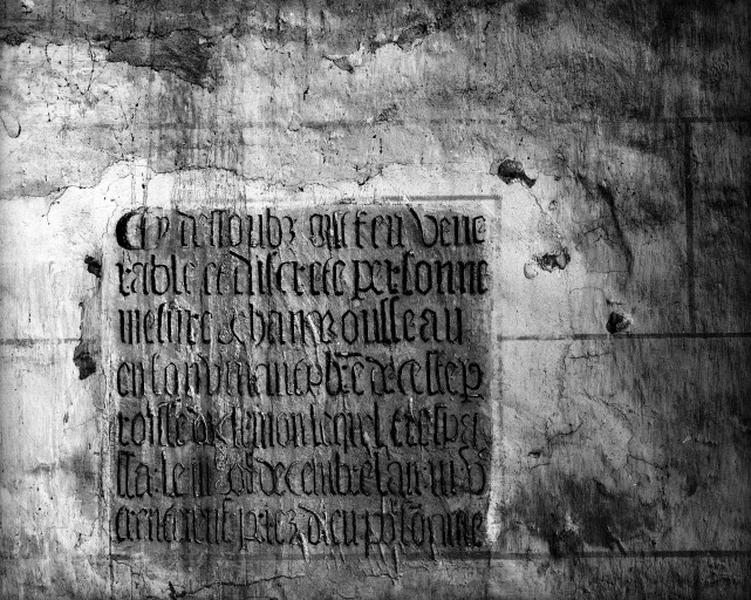 Cy dessoubz gist feu vene
rable et discrete personne
messire rousseau
en son vivant pbre de ceste p
roisse de lequel trespas
sa le decembre lan mil v
et priez dieu po so ame